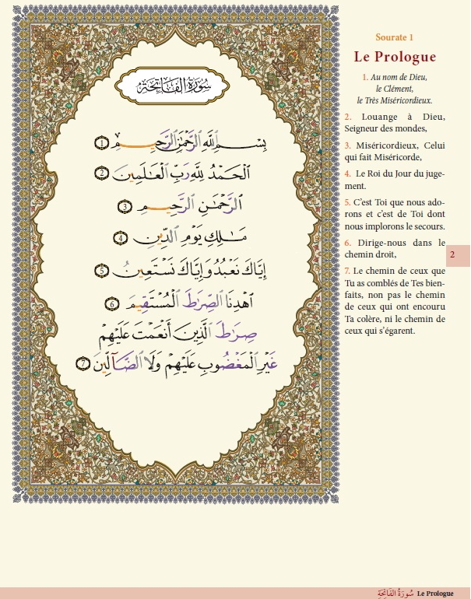 سُورَةُ الفَاتِحَةِ
بِسْمِ اللَّهِ الرَّحْمَٰنِ الرَّحِيمِ ١
الْحَمْدُ لِلَّهِ رَبِّ الْعَالَمِينَ ٢
الرَّحْمَٰنِ الرَّحِيمِ ٣
مَالِكِ يَوْمِ الدِّينِ ٤
إِيَّاكَ نَعْبُدُ وَإِيَّاكَ نَسْتَعِينُ ٥
اهْدِنَا الصِّرَاطَ الْمُسْتَقِيمَ ٦
صِرَاطَ الَّذِينَ أَنْعَمْتَ عَلَيْهِمْ
غَيْرِ الْمَغْضُوبِ عَلَيْهِمْ وَلَا الضَّالِّينَ ٧
Sourate 1
Le Prologue
1. Au nom de Dieu,
le Clément,
le Très Miséricordieux.
2. Louange à Dieu,
Seigneur des mondes,
3. Miséricordieux, Celui
qui fait Miséricorde,
4. Le Roi du Jour du juge-
ment.
5. C'est Toi que nous ado-
rons et c'est de Toi dont
nous implorons le secours.
6. Dirige-nous dans le
chemin droit,
7. Le chemin de ceux que
Tu as comblés de Tes bien-
faits, non pas le chemin
de ceux qui ont encouru
Ta colère, ni le chemin de
ceux qui s'égarent.
2
سُورَةُ الفَاتِحَةِ Le Prologue